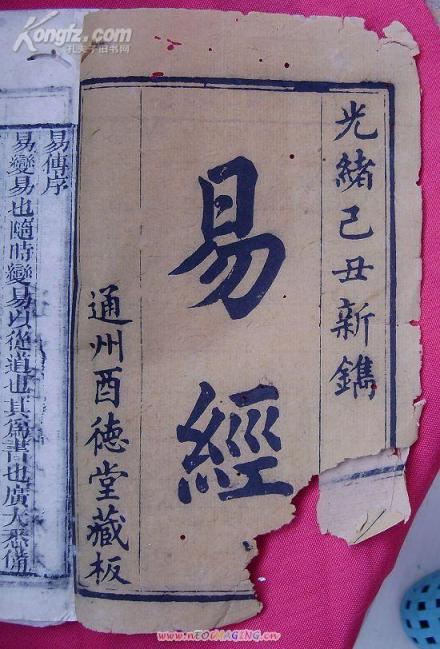 Kongfz.com
孔夫子旧书网
光緒己丑新鐫
易經
通州酉德堂藏板
易傳序
易變易也隨時變易以從道也其爲書也廣大悉備
www.nEOIMAGING.cn